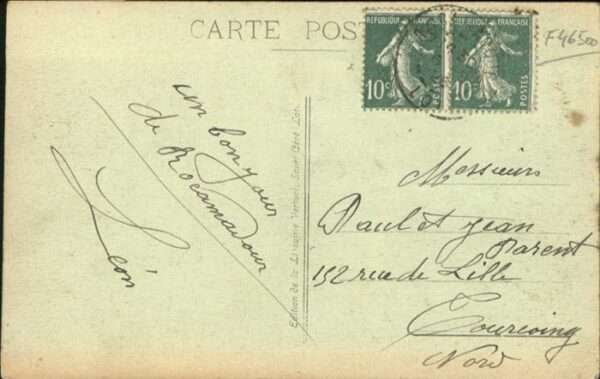 CARTE POST
REPUBLIQUE FRANÇAISE
10c
POSTES
REPUBLIQUE FRANÇAISE
10c
POSTES
F46500
un bonjour
de Rocamadour
Léon
Edition de la Librairie Vertuel, Saint-Céré Lot.
Messieurs
Paul et Jean
Parent
152 rue de Lille
Tourcoing
Nord